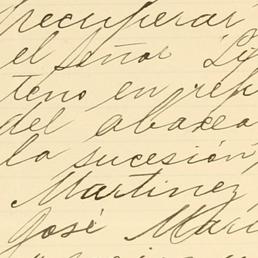 recuperar
el señor
teno en rep
del abaxo
la sucesión,
Martinez,
José Marí